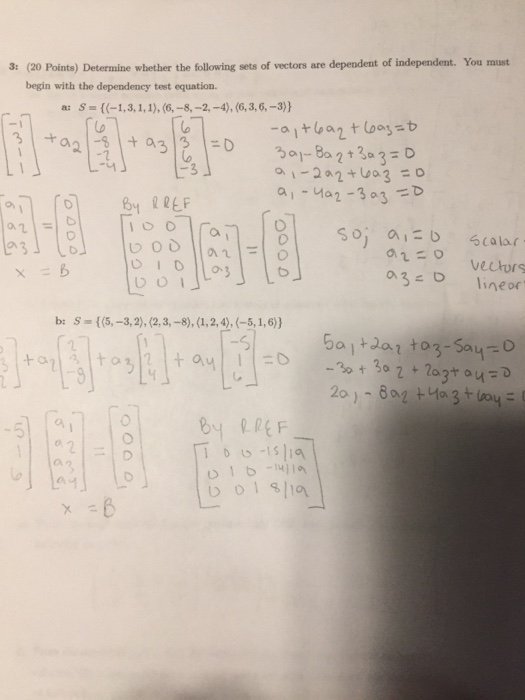 3: (20 Points) Determine whether the following sets of vectors are dependent of independent. You must
begin with the dependency test equation.
a: S = {(−1, 3, 1, 1), (6, −8, −2, −4), (6, 3, 6, −3)}
[-1 3 1 1] + a2 [6 -8 -2 -4] + a3 [6 3 6 -3] = 0
-a1 + 6a2 + 6a3 = 0
3a1 - 8a2 + 3a3 = 0
a1 - 2a2 + 6a3 = 0
a1 - 4a2 - 3a3 = 0
[a1 a2 a3] = [0 0 0 0]
x = B
By RREF
[1 0 0
0 0 0
0 1 0
0 0 1] [a1 a2 a3] = [0 0 0 0]
so; a1 = 0
a2 = 0
a3 = 0
scalar
vectors
linear
b: S = {(5, −3, 2), (2, 3, −8), (1, 2, 4), (−5, 1, 6)}
+ a2 [2 3 -8] + a3 [1 2 4] + a4 [-5 1 6] = 0
5a1 + 2a2 + a3 - 5a4 = 0
-3a + 3a2 + 2a3 + a4 = 0
2a1 - 8a2 + 4a3 + 6a4 =
-5 1 6] [a1 a2 a3 a4] = [0 0 0 0]
x = B
By RREF
[1 0 0 -15/19
0 1 0 -14/19
0 0 1 8/19]